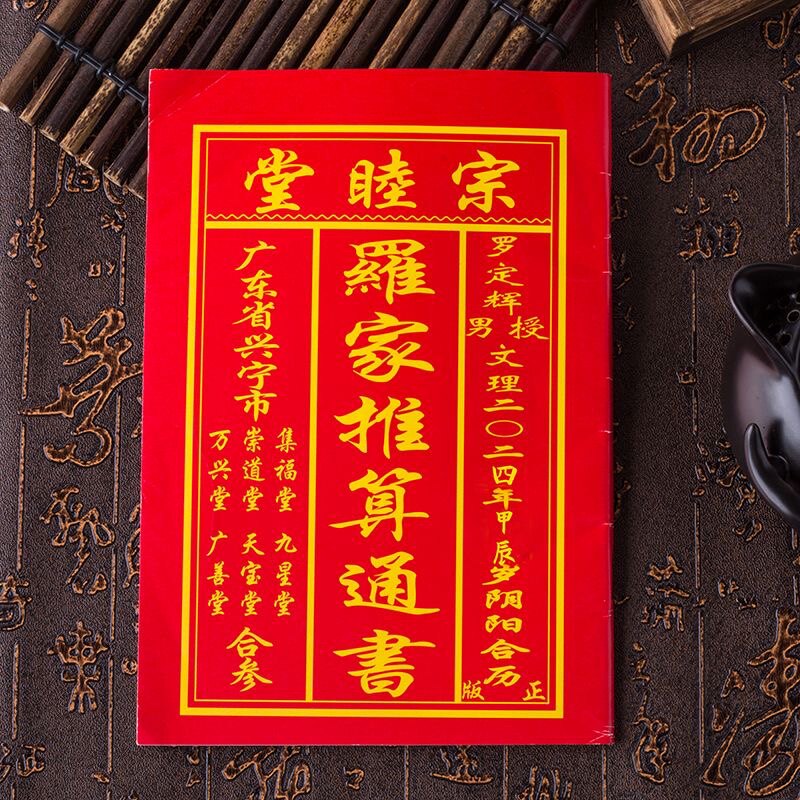 宗睦堂
罗定辉
男授
文理二〇二四年甲辰岁阴阳合历
正版
羅家推算通書
广东省兴宁市
集福堂 九星堂
崇道堂 天宝堂
万兴堂 广善堂
合参